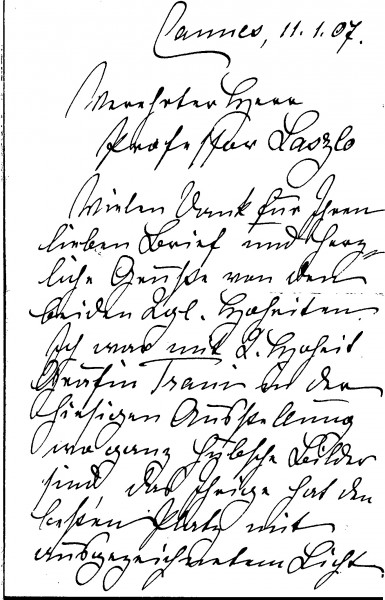 Cannes, 11.1.07.
Verehrter Herr
Professor Laszlo
Vielen Dank für Ihren
lieben Brief und herz-
liche Grüße von den
beiden Kgl. Hoheiten.
Ich war mit K. Hoheit
Gräfin Trani in der
hiesigen Ausstellung
wo ganz hübsche Bilder
sind das Ihrige hat den
besten Platz mit
ausgezeichnetem Licht.